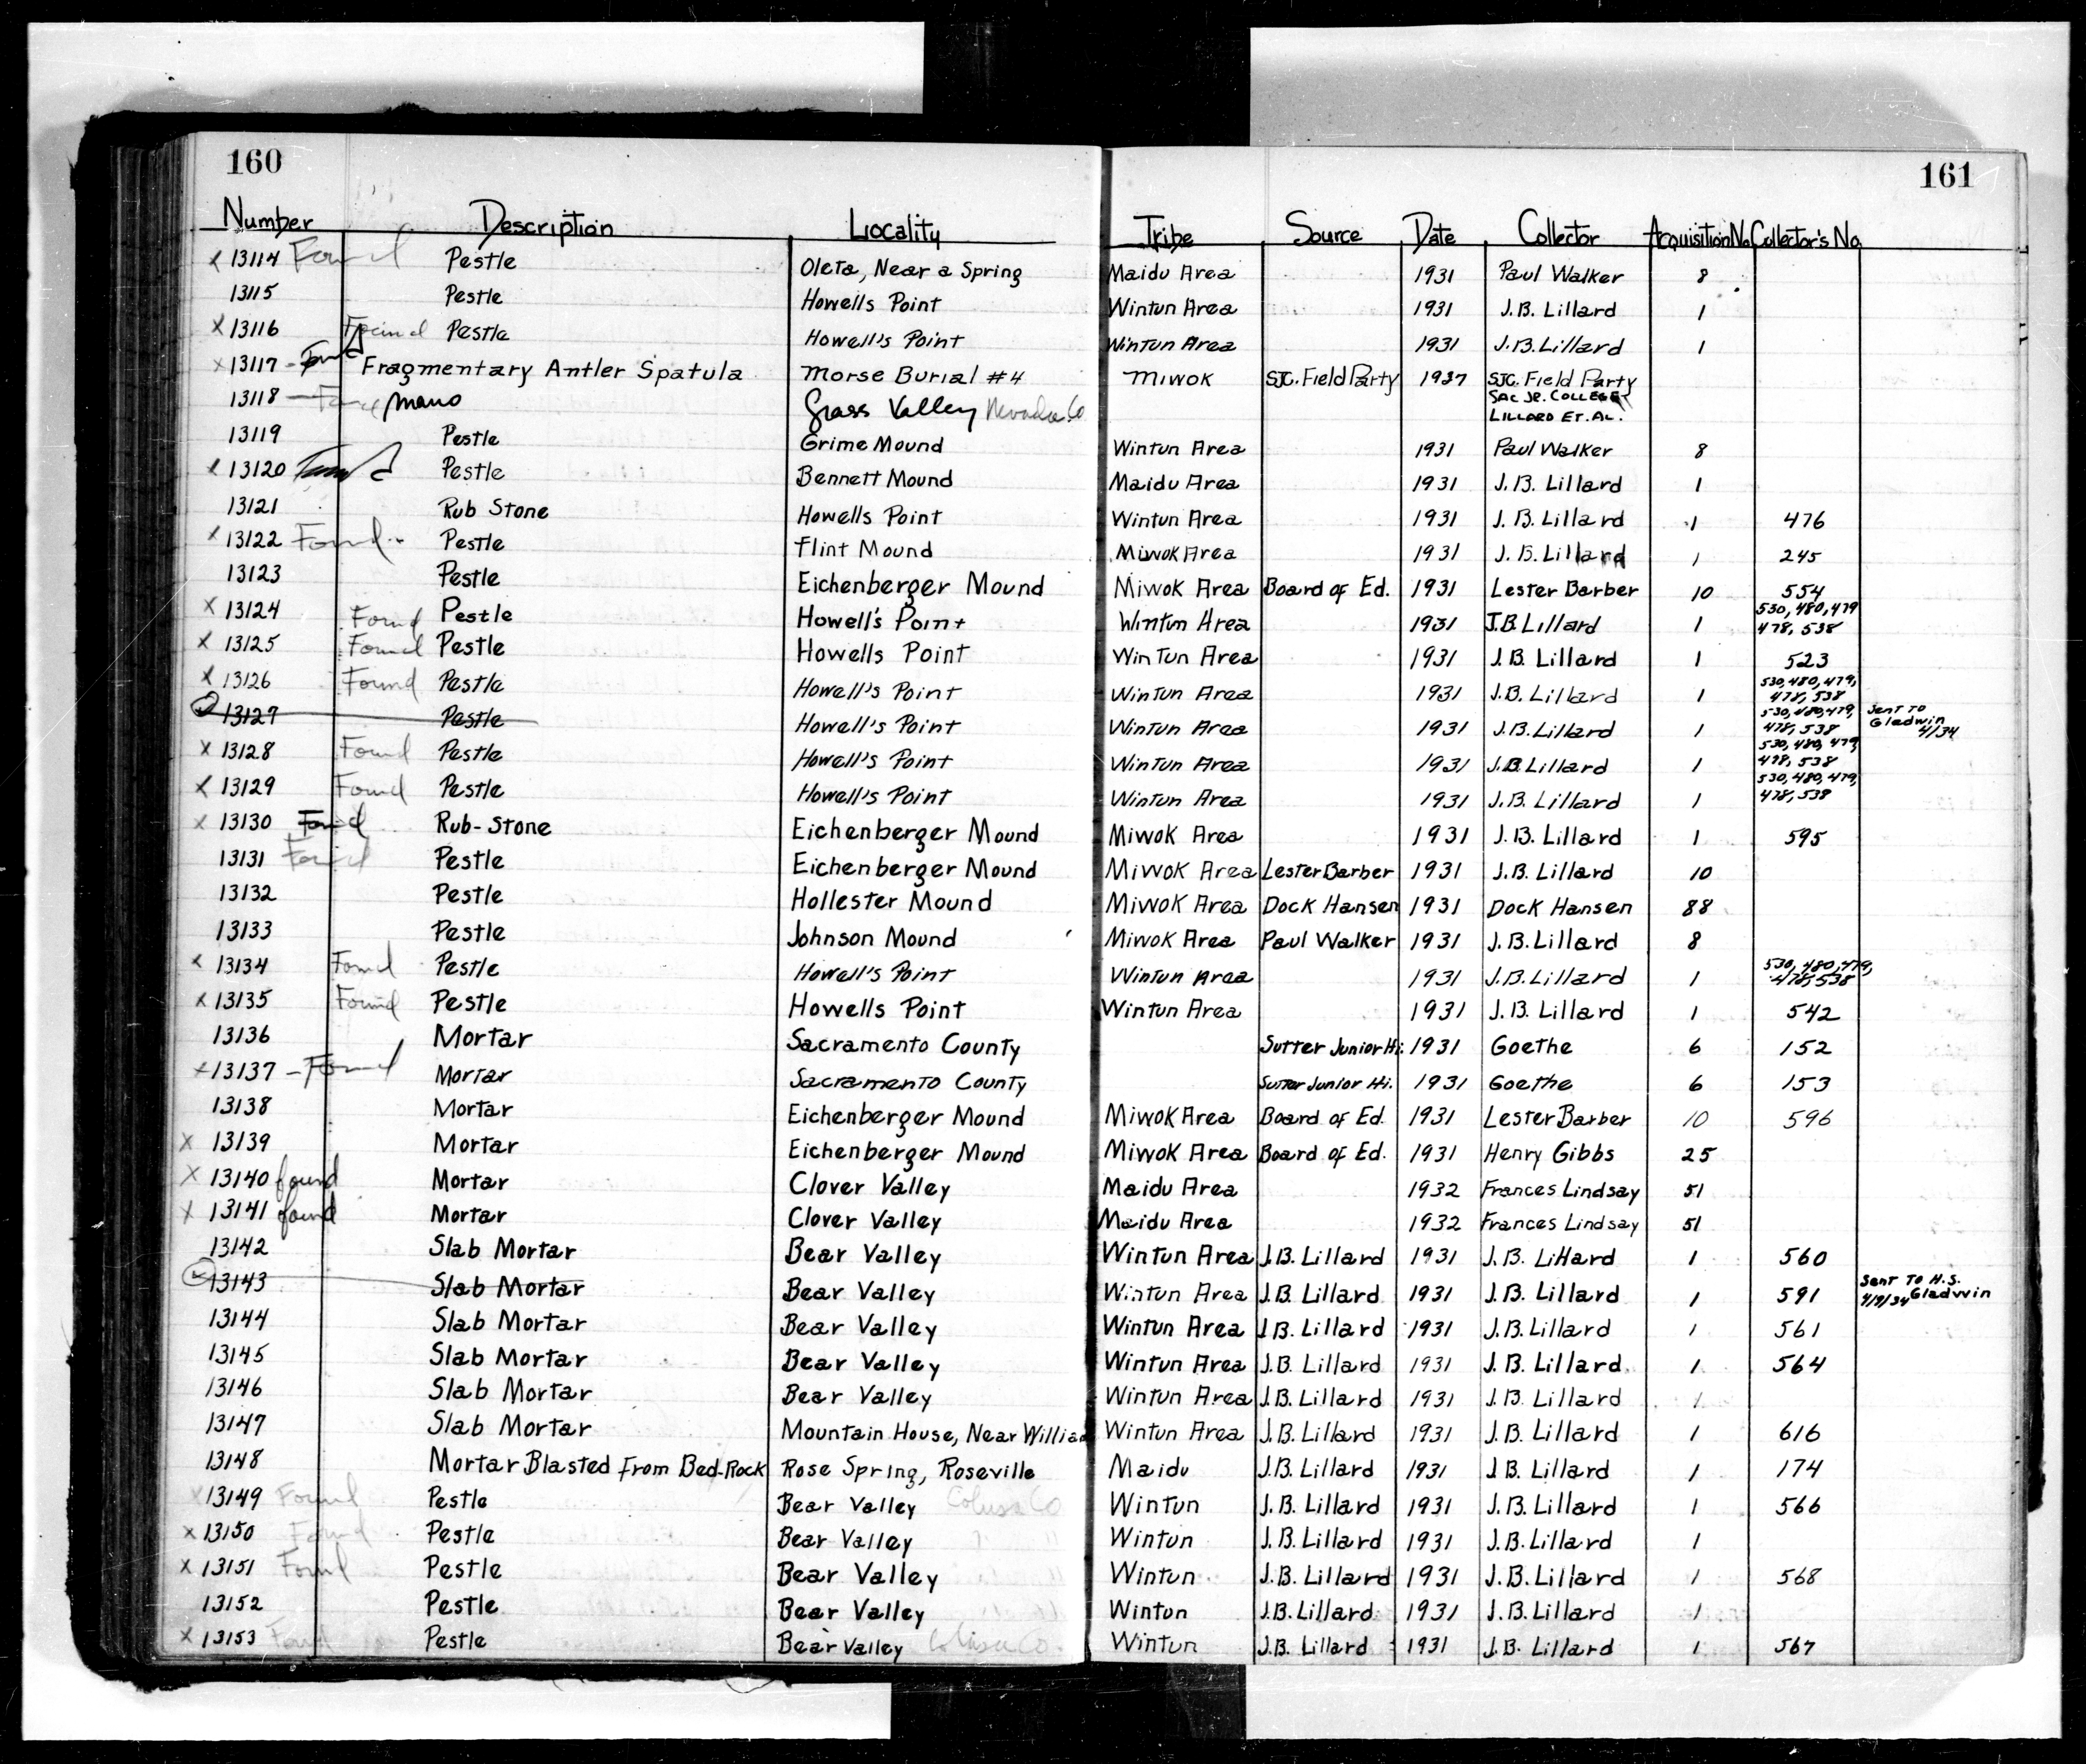 160
161
Number Description Locality Tribe Source Date Collector Acquisition No. Collector's No.
x 13114 Found Pestle Oleta, Near a Spring Maidu Area 1931 Paul Walker 8
13115 Pestle Howells Point Wintun Area 1931 J.B. Lillard 1
x 13116 Found Pestle Howell's Point Wintun Area 1931 J.B. Lillard 1
x 13117 - Found Fragmentary Antler Spatula Morse Burial #4 Miwok SJC. Field Party 1937 SJC. Field Party
SAC JR. COLLEGE
LILLARD ET. AL.
13118 - Found Mano Grass Valley Nevada Co
13119 Pestle Grime Mound Wintun Area 1931 Paul Walker 8
x 13120 Found Pestle Bennett Mound Maidu Area 1931 J.B. Lillard 1
13121 Rub Stone Howells Point Wintun Area 1931 J.B. Lillard 1 476
x 13122 Found Pestle Flint Mound Miwok Area 1931 J.B. Lillard 1 245
13123 Pestle Eichenberger Mound Miwok Area Board of Ed. 1931 Lester Barber 10 554
x 13124 Found Pestle Howell's Point Wintun Area 1931 J.B Lillard 1 530, 480, 479
478, 538
x 13125 Found Pestle Howells Point Wintun Area 1931 J.B. Lillard 1 523
x 13126 Found Pestle Howell's Point Wintun Area 1931 J.B. Lillard 1 530, 480, 479,
478, 538
13127 Pestle Howell's Point Wintun Area 1931 J.B. Lillard 1 530, 480, 479,
478, 538
Sent To
Gladwin
4/34
x 13128 Found Pestle Howell's Point Wintun Area 1931 J.B. Lillard 1 530, 480, 479,
478, 538
x 13129 Found Pestle Howell's Point Wintun Area 1931 J.B. Lillard 1 530, 480, 479,
478, 538
x 13130 Found Rub-Stone Eichenberger Mound Miwok Area 1931 J.B. Lillard 1 595
13131 Found Pestle Eichenberger Mound Miwok Area Lester Barber 1931 J.B. Lillard 10
13132 Pestle Hollester Mound Miwok Area Dock Hansen 1931 Dock Hansen 88
13133 Pestle Johnson Mound Miwok Area Paul Walker 1931 J.B. Lillard 8
x 13134 Found Pestle Howell's Point Wintun Area 1931 J.B. Lillard 1 530, 480, 479,
478, 538
x 13135 Found Pestle Howells Point Wintun Area 1931 J.B. Lillard 1 542
13136 Mortar Sacramento County Sutter Junior Hi. 1931 Goethe 6 152
x 13137 - Found Mortar Sacramento County Sutter Junior Hi. 1931 Goethe 6 153
13138 Mortar Eichenberger Mound Miwok Area Board of Ed. 1931 Lester Barber 10 596
x 13139 Mortar Eichenberger Mound Miwok Area Board of Ed. 1931 Henry Gibbs 25
x 13140 found Mortar Clover Valley Maidu Area 1932 Frances Lindsay 51
x 13141 found Mortar Clover Valley Maidu Area 1932 Frances Lindsay 51
13142 Slab Mortar Bear Valley Wintun Area J.B. Lillard 1931 J.B. Lillard 1 560
13143 Slab Mortar Bear Valley Wintun Area J.B. Lillard 1931 J.B. Lillard 1 591
Sent To H.S.
4/9/34 Gladwin
13144 Slab Mortar Bear Valley Wintun Area J.B. Lillard 1931 J.B. Lillard 1 561
13145 Slab Mortar Bear Valley Wintun Area J.B. Lillard 1931 J.B. Lillard 1 564
13146 Slab Mortar Bear Valley Wintun Area J.B. Lillard 1931 J.B. Lillard 1
13147 Slab Mortar Mountain House, Near Willia Wintun Area J.B. Lillard 1931 J.B. Lillard 1 616
13148 Mortar Blasted from Bed-Rock Rose Spring, Roseville Maidu J.B. Lillard 1931 J.B. Lillard 1 174
x 13149 Found Pestle Bear Valley Colusa Co Wintun J.B. Lillard 1931 J.B. Lillard 1 566
x 13150 Found Pestle Bear Valley " " Wintun J.B. Lillard 1931 J.B. Lillard 1
x 13151 Found Pestle Bear Valley Wintun J.B. Lillard 1931 J.B. Lillard 1 568
13152 Pestle Bear Valley Wintun J.B. Lillard 1931 J.B. Lillard 1
x 13153 Found Pestle Bear Valley Colusa Co. Wintun J.B. Lillard 1931 J.B. Lillard 1 567